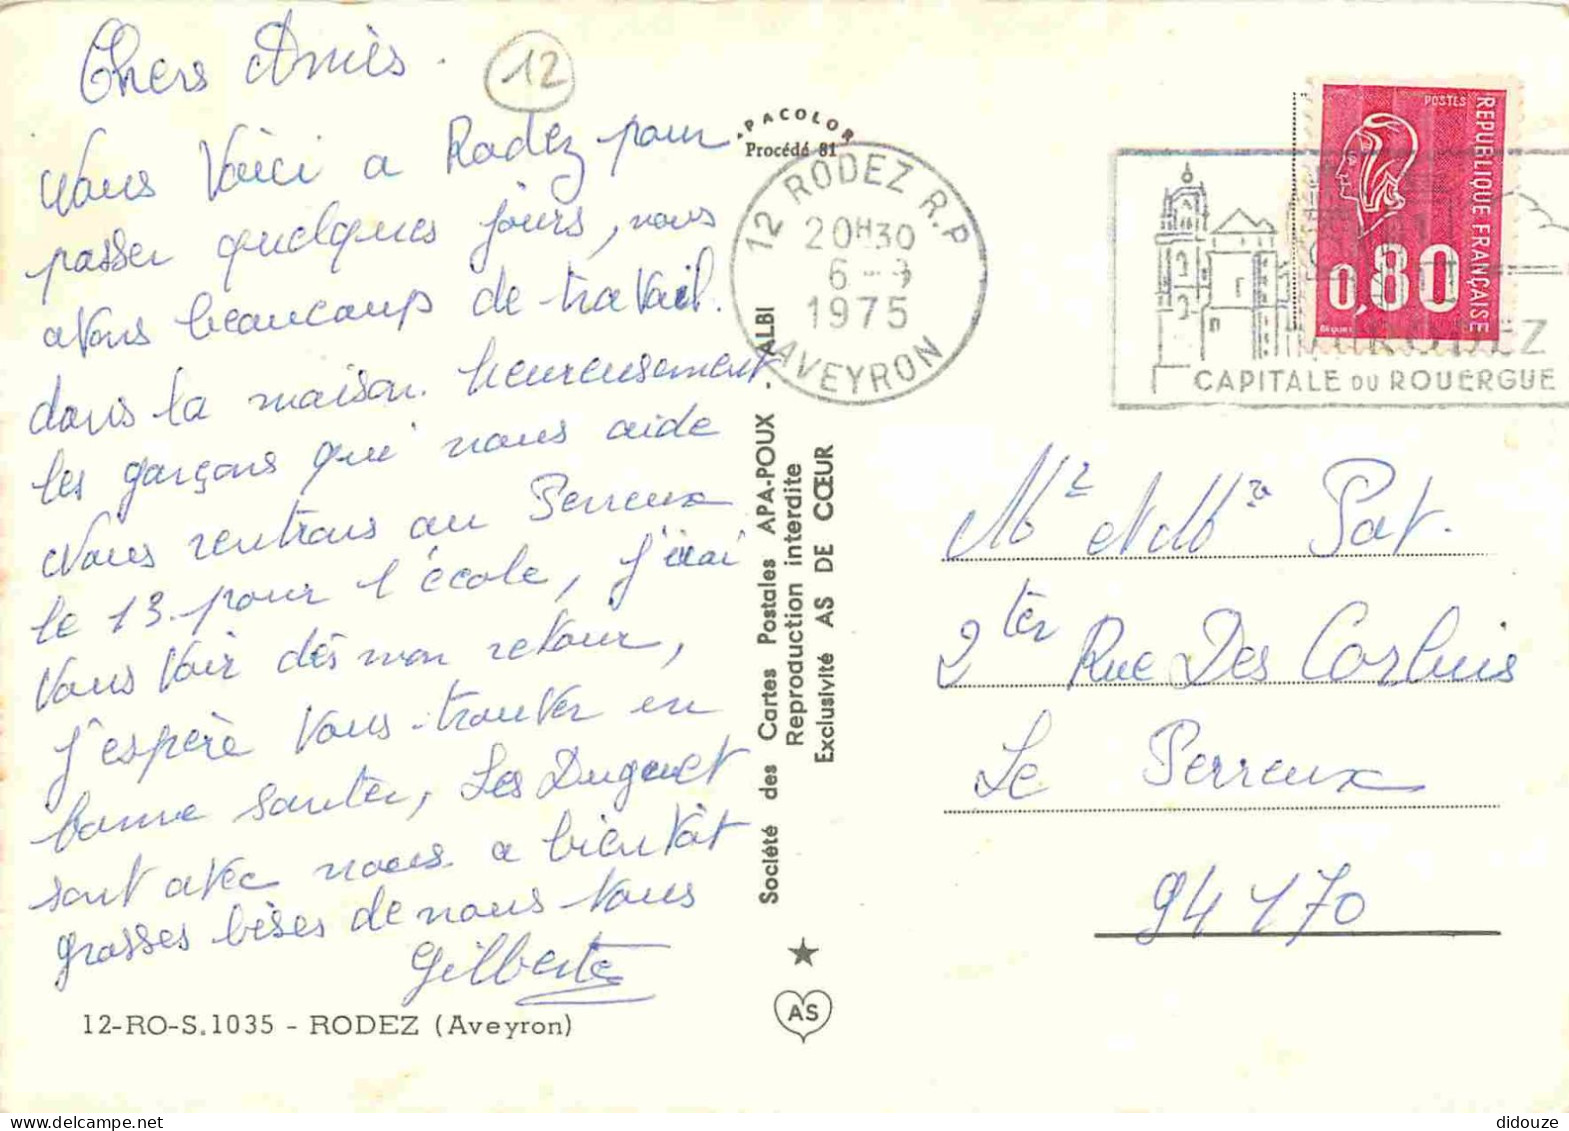 Chers Amiès.
12
Nous Voici a Rodez pour
passer quelques jours, nous
avons beaucoup de travail.
dans la maison. heureusement
les garçons qui nous aide
Nous rentrons au Perreux
le 13. pour l'école, j'irai
vous voir dés mon retour,
j'espère vous trouver en
bonne santée, Les
sont avec nous. a bientôt
grosses bèses de nous tous
Gilberte
12-RO-S.1035 - RODEZ (Aveyron)
APACOLOR
Procédé 81
Société des Cartes Postales APA-POUX - ALBI
Reproduction interdite
Exclusivité AS DE CŒUR
AS
12 RODEZ R.P
20H30
6 - 9
1975
AVEYRON
POSTES
REPUBLIQUE FRANÇAISE
0,80
RODEZ
CAPITALE DU ROUERGUE
Mr et Mme Pat.
2ter Rue Des Corbuis
Le Perreux
94170
didouze